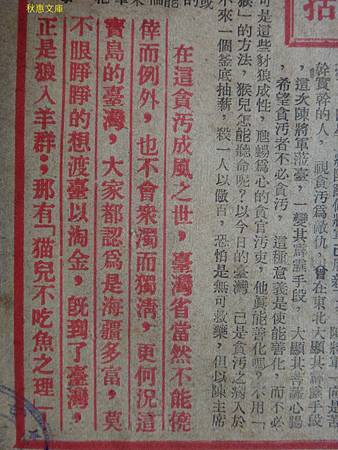 秋惠文庫
括
陳將軍一向是苦
幹實幹的人，視貪污為敵仇，曾在東北大顯其霹靂手段
，這次陳將軍蒞臺，一變其霹靂手段，大顯其菩薩心腸
，希望貪污者不必貪污，這種意義是使能善化，而不必
可是這些豺狼成性，虺蝎為心的貪官污吏，他真能善化嗎？不用「
狼」的方法，猴兒怎能聽命呢？以今日的臺灣，已是貪污之病入於
不來一個釜底抽薪，殺一人以儆百，恐怕是無可救藥，但以陳主席
在這貪汚成風之世，臺灣省當然不能僥
倖而例外，也不會衆濁而獨清，更何況這
寶島的臺灣，大家都認為是海疆多富，莫
不眼睜睜的想渡臺以淘金，旣到了臺灣，
正是狼入羊群；那有「猫兒不吃魚之理」